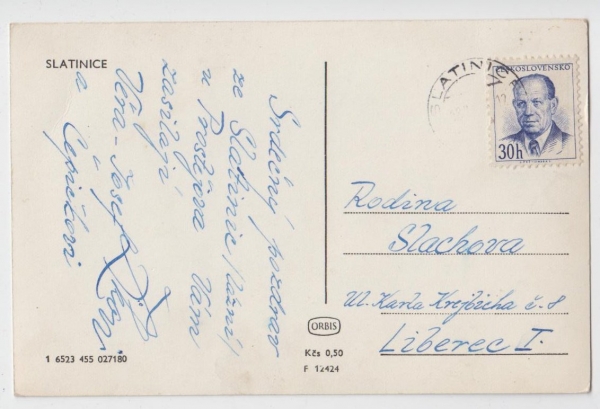 SLATINICE
Srdečný pozdrav
ze Slatinic /lázní/
u Prostějova Vám
zasílají
Věra - Josef
a
SLATINICE
ČESKOSLOVENSKO
30h
Rodina
Slachova
ul. Karla
č. 8
Liberec I.
ORBIS
Kčs 0,50
F 12424
1 6523 455 027180